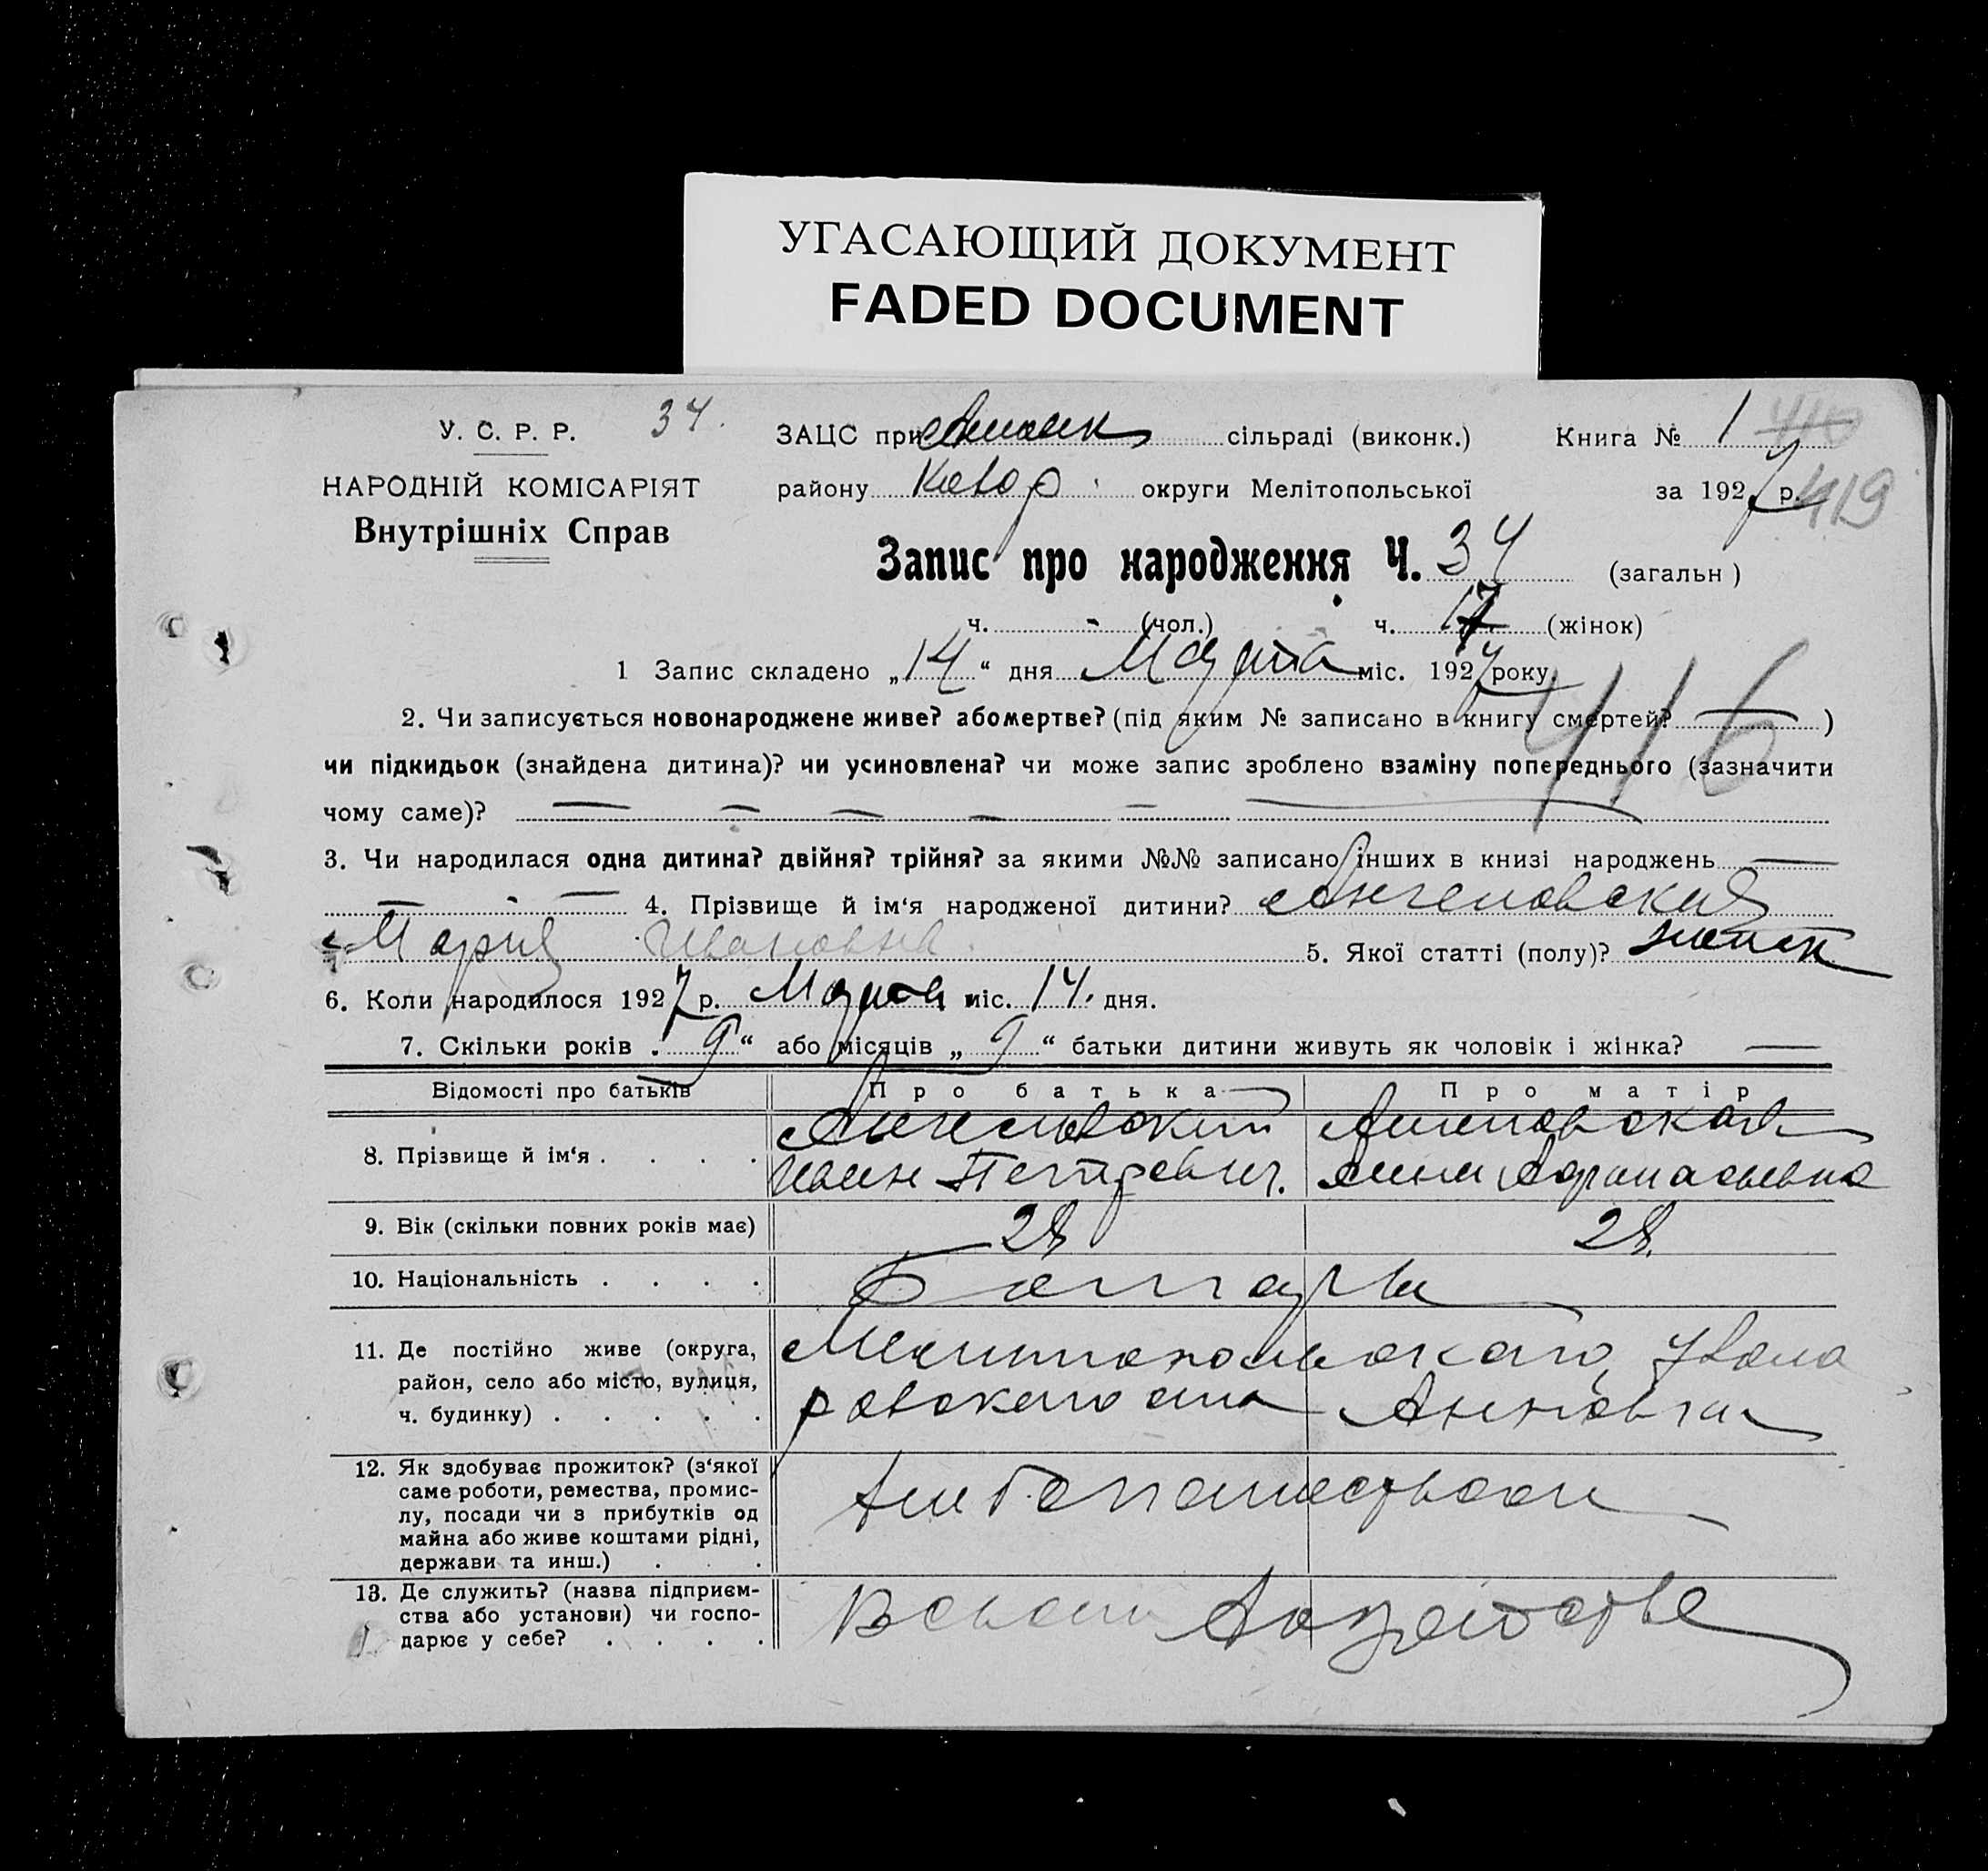 УГАСАЮЩИЙ ДОКУМЕНТ
FADED DOCUMENT
У. С. Р. Р. 34.
НАРОДНІЙ КОМІСАРІЯТ
Внутрішніх Справ
ЗАЦС при сільраді (виконк.) Книга № 1 410
району округи Мелітопольської за 1927 р. 419
Запис про народження Ч. 34 (загальн)
ч. - (чол.) ч. 17 (жінок)
1 Запис складено „14“ дня Марта міс. 1927 року
416
2. Чи записується новонароджене живе? або мертве? (під яким № записано в книгу смертей? — )
чи підкидьок (знайдена дитина)? чи усиновлена? чи може запис зроблено взаміну попереднього (зазначити
чому саме)? — — — — — —
3. Чи народилася одна дитина? двійня? трійня? за якими №№ записано інших в книзі народжень —
— - — 4. Прізвище й ім‘я народженої дитини? Ангеловская
Мария Ивановна 5. Якої статті (полу)?
6. Коли народилося 1927 р. Марта міс. 14. дня.
7. Скільки років „9“ або місяців „9“ батьки дитини живуть як чоловік і жінка? —
Відомості про батьків Про батька Про матір
8. Прізвище й ім‘я . . . . Ангеловский Ангеловская
Иван Петрович. Анна
9. Вік (скільки повних років має) 28 28.
10. Національність . . . . Болгары
11. Де постійно живе (округа,
район, село або місто, вулиця,
ч. будинку) . . . . .
Мелитопольского
12. Як здобуває прожиток? (з‘якої
саме роботи, ремества, промис-
лу, посади чи з прибутків од
майна або живе коштами рідні,
держави та инш.) . . .
Хлебопашеством
13. Де служить? (назва підприєм-
ства або установи) чи госпо-
дарює у себе? . . . .
В своем хозяйстве